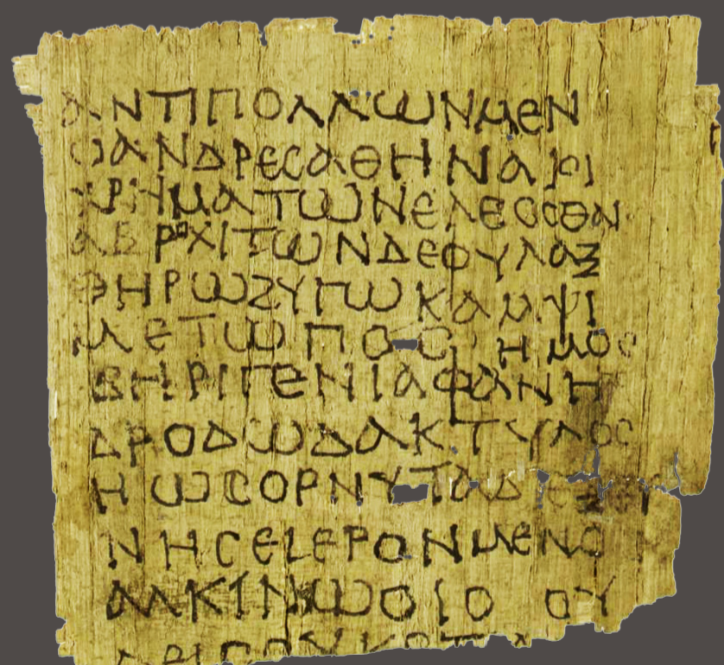 ΑΝΤΙΠΟΛΛΩΝΜΕΝ
ΩΑΝΔΡΕϹΑΘΗΝΑΙΟΙ
ΧΡΗΜΑΤΩΝΕΛΕϹϹΘΑΙ
ΑΒΡΟΧΙΤΩΝΔΕΟΥΛΑΞ
ΘΗΡΩΖΥΓΩΚΑΜΨΙ
ΜΕΤΩΠΟϹ ΗΜΟϹ
ΒΗΡΙΓΕΝΙΑΦΑΝΗ
ΔΡΟΔΩΔΑΚΤΥΛΟϹ
ΗΩϹΟΡΝΥΤΑΔΕΞΕΥ
ΝΗϹΕΙΕΡΟΝΜΕΝΟ
ΑΛΚΙΝΩΟΙΟ ΟΥ